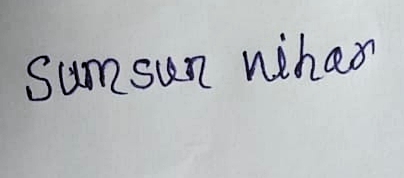 Sumsun nihar